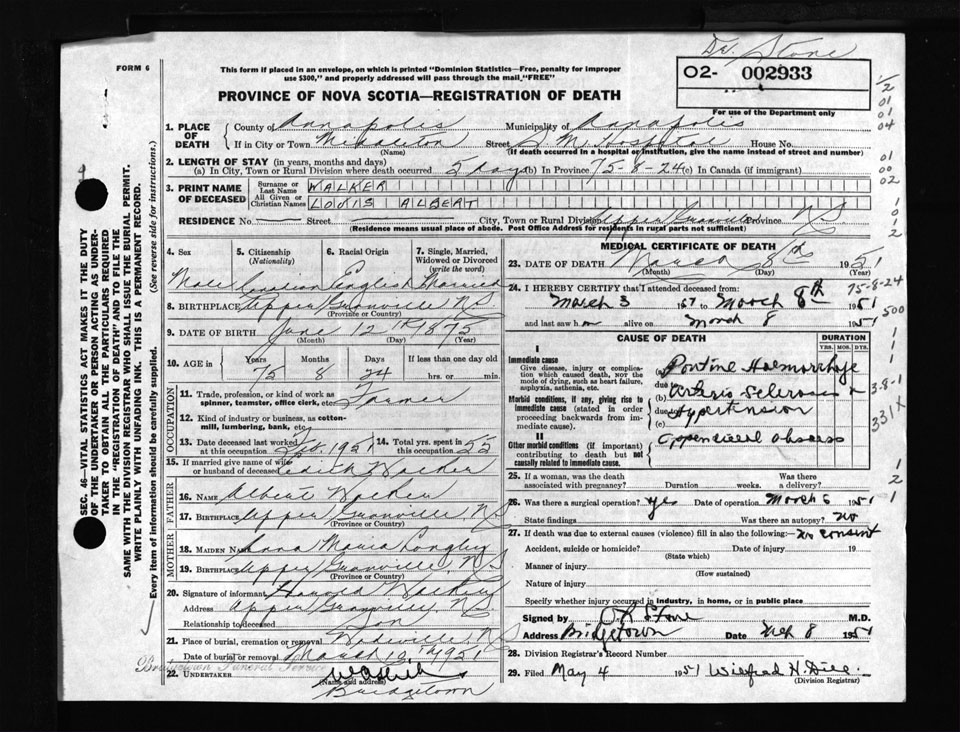 Dr. Stone
FORM 6
This form if placed in an envelope, on which is printed "Dominion Statistics—Free, penalty for improper
use $300," and properly addressed will pass through the mail "FREE"
02- 002933
PROVINCE OF NOVA SCOTIA—REGISTRATION OF DEATH
For use of the Department only
1. PLACE OF DEATH
County of Annapolis Municipality of Annapolis
If in City or Town Middleton Street S. M. Hospital House No.
(Name) (If death occurred in a hospital or institution, give the name instead of street and number)
2. LENGTH OF STAY (in years, months and days)
(a) In City, Town or Rural Division where death occurred 5 days (b) In Province 75-8-24 (c) In Canada (if immigrant)
3. PRINT NAME OF DECEASED
Surname or Last Name WALKER
All Given or Christian Names LOUIS ALBERT
RESIDENCE No. Street City, Town or Rural Division Upper Granville Province N.S.
(Residence means usual place of abode. Post Office Address for residents in rural parts not sufficient)
4. Sex 5. Citizenship (Nationality) 6. Racial Origin 7. Single, Married, Widowed or Divorced (write the word)
Male Canadian English Married
8. BIRTHPLACE Upper Granville, N.S.
(Province or Country)
9. DATE OF BIRTH June 12th 1875
(Month) (Day) (Year)
10. AGE in Years Months Days If less than one day old
75 8 24 hrs. or min.
OCCUPATION
11. Trade, profession, or kind of work as spinner, teamster, office clerk, etc. Farmer
12. Kind of industry or business, as cotton-mill, lumbering, bank, etc.
13. Date deceased last worked at this occupation Feb. 1951 14. Total yrs. spent in this occupation 55
15. If married give name of wife or husband of deceased Edith Walker
FATHER
16. Name Albert Walker
17. Birthplace Upper Granville, N.S.
(Province or Country)
MOTHER
18. Maiden Name Maria Longley
19. Birthplace Upper Granville, N.S.
(Province or Country)
20. Signature of informant Harold Walker
Address Upper Granville, N.S.
Relationship to deceased Son
21. Place of burial, cremation or removal Wadeville, N.S.
Date of burial or removal March 10th 1951
Bridgetown Funeral Service
22. UNDERTAKER
(Name and address)
Bridgetown
MEDICAL CERTIFICATE OF DEATH
23. DATE OF DEATH March 8th 1951
(Month) (Day) (Year)
24. I HEREBY CERTIFY that I attended deceased from:
March 3 to March 8th 1951
and last saw him alive on March 8 1951
CAUSE OF DEATH DURATION
YRS. MOS. DYS.
I
Immediate cause
Give disease, injury or complication which caused death, not the mode of dying, such as heart failure, asphyxia, asthenia, etc.
(a) Pontine Haemorrhage
due to
Morbid conditions, if any, giving rise to immediate cause (stated in order proceeding backwards from immediate cause).
Arterio Sclerosis
due to Hypertension
(c)
II
Other morbid conditions (if important) contributing to death but not causally related to immediate cause.
appendical abscess
25. If a woman, was the death associated with pregnancy? Duration weeks. Was there a delivery?
26. Was there a surgical operation? yes Date of operation March 6 1951
State findings Was there an autopsy? no
27. If death was due to external causes (violence) fill in also the following:— no consent
Accident, suicide or homicide? Date of injury 19
(State which)
Manner of injury
(How sustained)
Nature of injury
Specify whether injury occurred in industry, in home, or in public place
Signed by Stone M.D.
Address Bridgetown Date Mch 8 1951
28. Division Registrar's Record Number
29. Filed May 4 1951 Wilfred H. Dill
(Division Registrar)
SEC. 46—VITAL STATISTICS ACT MAKES IT THE DUTY
OF THE UNDERTAKER OR PERSON ACTING AS UNDER-
TAKER TO OBTAIN ALL THE PARTICULARS REQUIRED
IN THE "REGISTRATION OF DEATH" AND TO FILE THE
SAME WITH THE DIVISION REGISTRAR WHO SHALL ISSUE THE BURIAL PERMIT.
WRITE PLAINLY WITH UNFADING INK. THIS IS A PERMANENT RECORD.
Every item of information should be carefully supplied. (See reverse side for instructions.)
1/2
01
01
04
01
00
02
1
0
1
2
75-8-24
500
1
1
1
3-8-1
331X
1
2
1